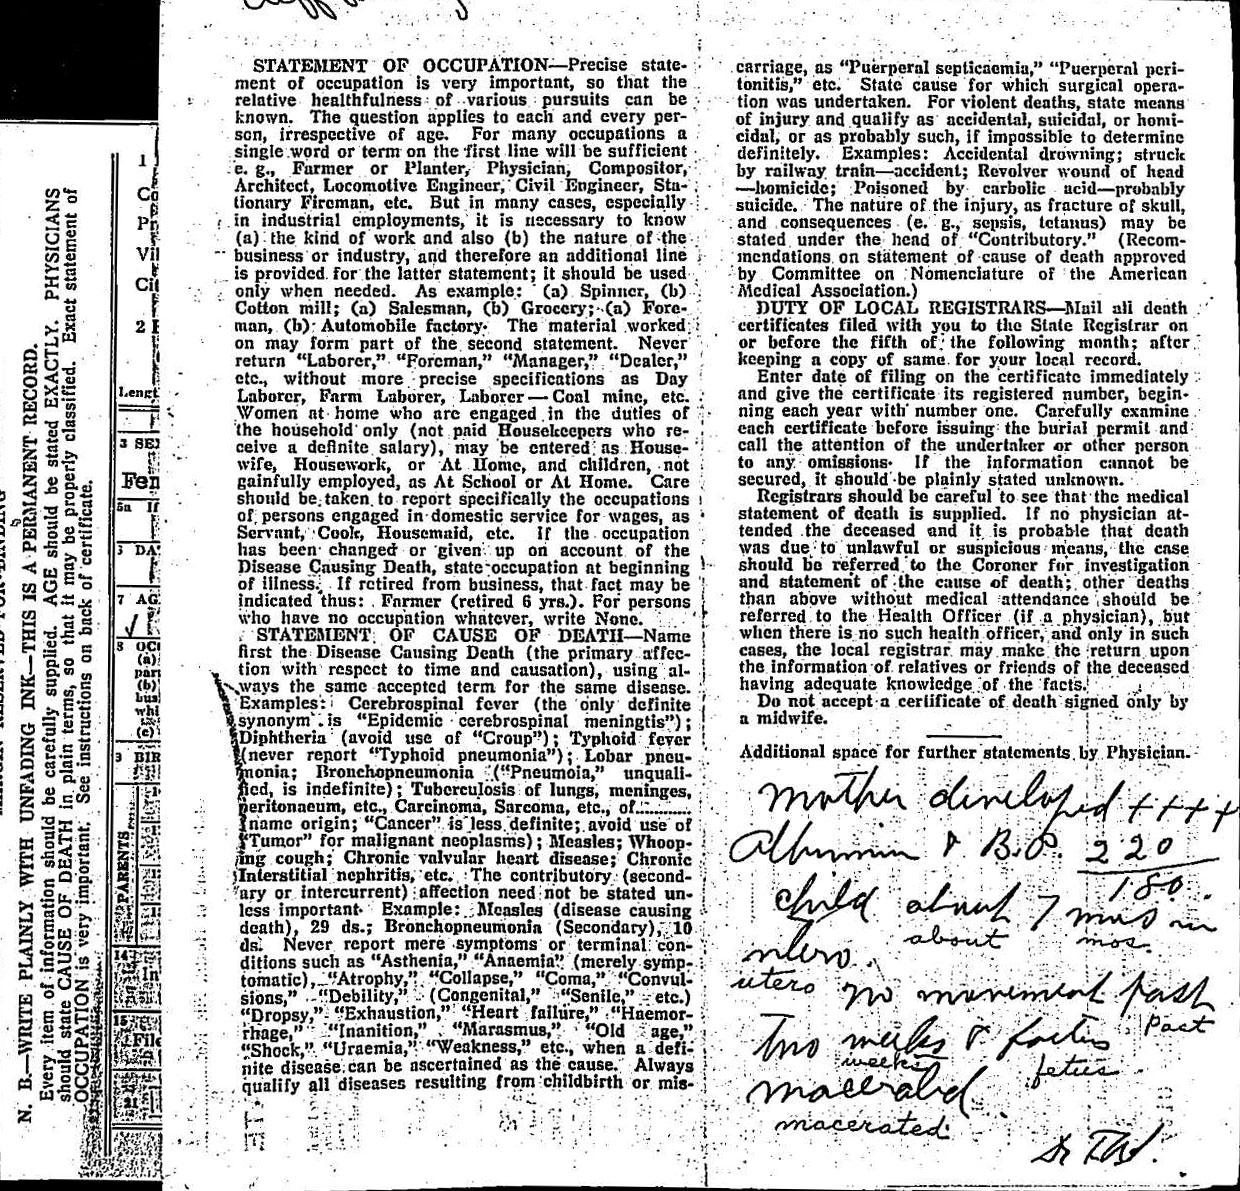 N. B.—WRITE PLAINLY WITH UNFADING INK—THIS IS A PERMANENT RECORD.
Every item of information should be carefully supplied. AGE should be stated EXACTLY. PHYSICIANS
should state CAUSE OF DEATH in plain terms, so that it may be properly classified. Exact statement of
OCCUPATION is very important. See instructions on back of certificate.
1
Co
Vil
Cit
2
Lengt
3 SE
Fen
5a If
DA
7 AG
8 OC
(a)
par
(b)
bus
whi
(c)
BIR
PARENTS
14
In
15
File
21
STATEMENT OF OCCUPATION—Precise state-
ment of occupation is very important, so that the
relative healthfulness of various pursuits can be
known. The question applies to each and every per-
son, irrespective of age. For many occupations a
single word or term on the first line will be sufficient
e. g., Farmer or Planter, Physician, Compositor,
Architect, Locomotive Engineer, Civil Engineer, Sta-
tionary Fireman, etc. But in many cases, especially
in industrial employments, it is necessary to know
(a) the kind of work and also (b) the nature of the
business or industry, and therefore an additional line
is provided for the latter statement; it should be used
only when needed. As example: (a) Spinner, (b)
Cotton mill; (a) Salesman, (b) Grocery; (a) Fore-
man, (b) Automobile factory. The material worked
on may form part of the second statement. Never
return "Laborer," "Foreman," "Manager," "Dealer,"
etc., without more precise specifications as Day
Laborer, Farm Laborer, Laborer—Coal mine, etc.
Women at home who are engaged in the duties of
the household only (not paid Housekeepers who re-
ceive a definite salary), may be entered as House-
wife, Housework, or At Home, and children, not
gainfully employed, as At School or At Home. Care
should be taken to report specifically the occupations
of persons engaged in domestic service for wages, as
Servant, Cook, Housemaid, etc. If the occupation
has been changed or given up on account of the
Disease Causing Death, state occupation at beginning
of illness. If retired from business, that fact may be
indicated thus: Farmer (retired 6 yrs.). For persons
who have no occupation whatever, write None.
STATEMENT OF CAUSE OF DEATH—Name
first the Disease Causing Death (the primary affec-
tion with respect to time and causation), using al-
ways the same accepted term for the same disease.
Examples: Cerebrospinal fever (the only definite
synonym is "Epidemic cerebrospinal meningtis");
Diphtheria (avoid use of "Croup"); Typhoid fever
(never report "Typhoid pneumonia"); Lobar pneu-
monia; Bronchopneumonia ("Pneumoia," unquali-
fied, is indefinite); Tuberculosis of lungs, meninges,
peritonaeum, etc., Carcinoma, Sarcoma, etc., of............
(name origin; "Cancer" is less definite; avoid use of
"Tumor" for malignant neoplasms); Measles; Whoop-
ing cough; Chronic valvular heart disease; Chronic
Interstitial nephritis, etc. The contributory (second-
ary or intercurrent) affection need not be stated un-
less important. Example: Measles (disease causing
death), 29 ds.; Bronchopneumonia (Secondary), 10
ds. Never report mere symptoms or terminal con-
ditions such as "Asthenia," "Anaemia" (merely symp-
tomatic), "Atrophy," "Collapse," "Coma," "Convul-
sions," "Debility," (Congenital," "Senile," etc.)
"Dropsy," "Exhaustion," "Heart failure," "Haemor-
rhage," "Inanition," "Marasmus," "Old age,"
"Shock," "Uraemia," "Weakness," etc., when a defi-
nite disease can be ascertained as the cause. Always
qualify all diseases resulting from childbirth or mis-
carriage, as "Puerperal septicaemia," "Puerperal peri-
tonitis," etc. State cause for which surgical opera-
tion was undertaken. For violent deaths, state means
of injury and qualify as accidental, suicidal, or homi-
cidal, or as probably such, if impossible to determine
definitely. Examples: Accidental drowning; struck
by railway train—accident; Revolver wound of head
—homicide; Poisoned by carbolic acid—probably
suicide. The nature of the injury, as fracture of skull,
and consequences (e. g., sepsis, tetanus) may be
stated under the head of "Contributory." (Recom-
mendations on statement of cause of death approved
by Committee on Nomenclature of the American
Medical Association.)
DUTY OF LOCAL REGISTRARS—Mail all death
certificates filed with you to the State Registrar on
or before the fifth of the following month; after
keeping a copy of same for your local record.
Enter date of filing on the certificate immediately
and give the certificate its registered number, begin-
ning each year with number one. Carefully examine
each certificate before issuing the burial permit and
call the attention of the undertaker or other person
to any omissions. If the information cannot be
secured, it should be plainly stated unknown.
Registrars should be careful to see that the medical
statement of death is supplied. If no physician at-
tended the deceased and it is probable that death
was due to unlawful or suspicious means, the case
should be referred to the Coroner for investigation
and statement of the cause of death; other deaths
than above without medical attendance should be
referred to the Health Officer (if a physician), but
when there is no such health officer, and only in such
cases, the local registrar may make the return upon
the information of relatives or friends of the deceased
having adequate knowledge of the facts.
Do not accept a certificate of death signed only by
a midwife.
Additional space for further statements by Physician.
Mother developed ++++
Albumin & B.P. 220
180.
child about 7 mos in
about mos.
utero.
utero no movement past
past
two weeks & foetus
weeks fetus
macerated
macerated
Dr